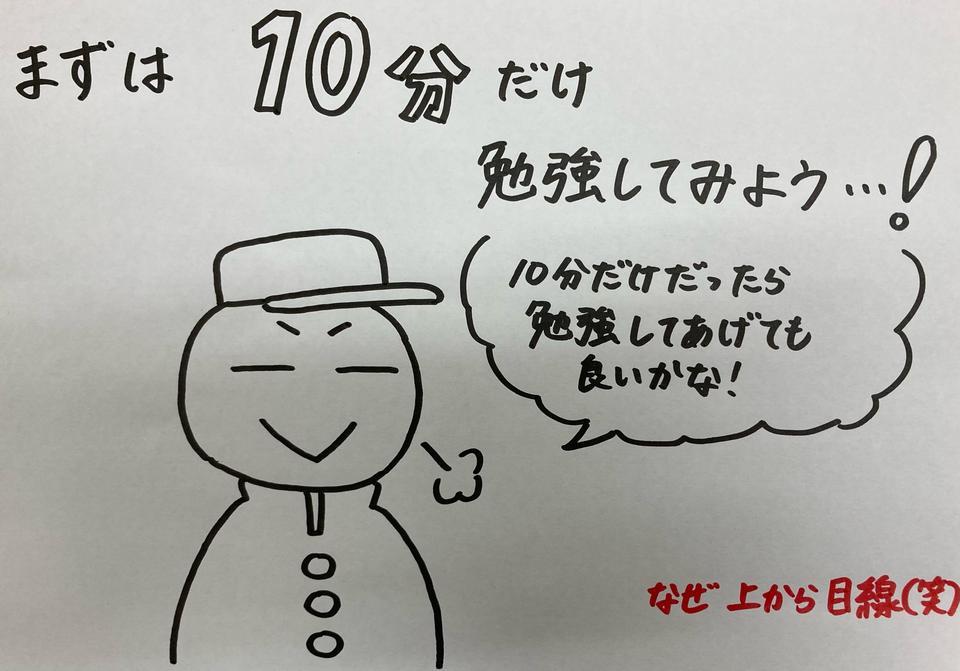 まずは 10分 だけ
勉強してみよう…!
10分だけだったら
勉強してあげても
良いかな!
なぜ上から目線(笑)